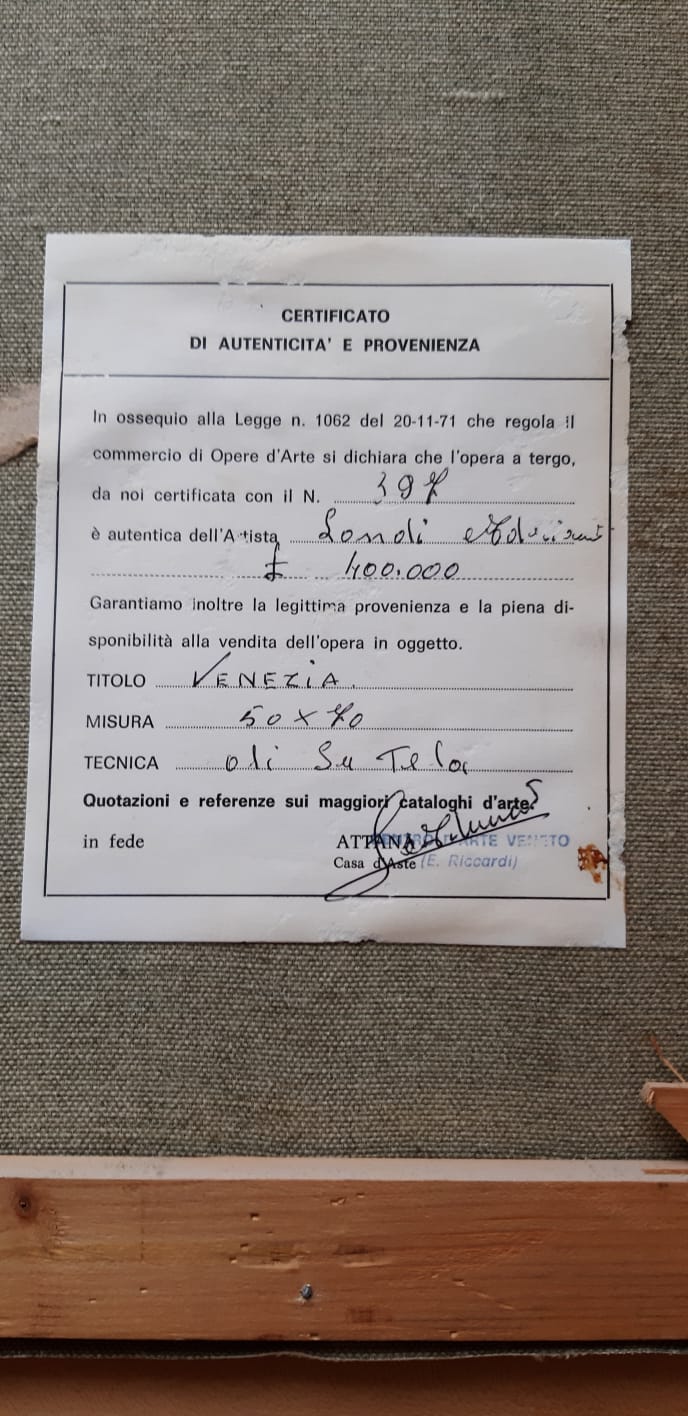 CERTIFICATO
DI AUTENTICITA' E PROVENIENZA
In ossequio alla Legge n. 1062 del 20-11-71 che regola il
commercio di Opere d'Arte si dichiara che l'opera a tergo,
da noi certificata con il N. 397
è autentica dell'Artista Londi
£ 400.000
Garantiamo inoltre la legittima provenienza e la piena di-
sponibilità alla vendita dell'opera in oggetto.
TITOLO VENEZIA
MISURA 50 x 70
TECNICA oli su Tela
Quotazioni e referenze sui maggiori cataloghi d'arte.
in fede ATTANA ARTE VENETO
Casa d'Aste (E. Riccardi)